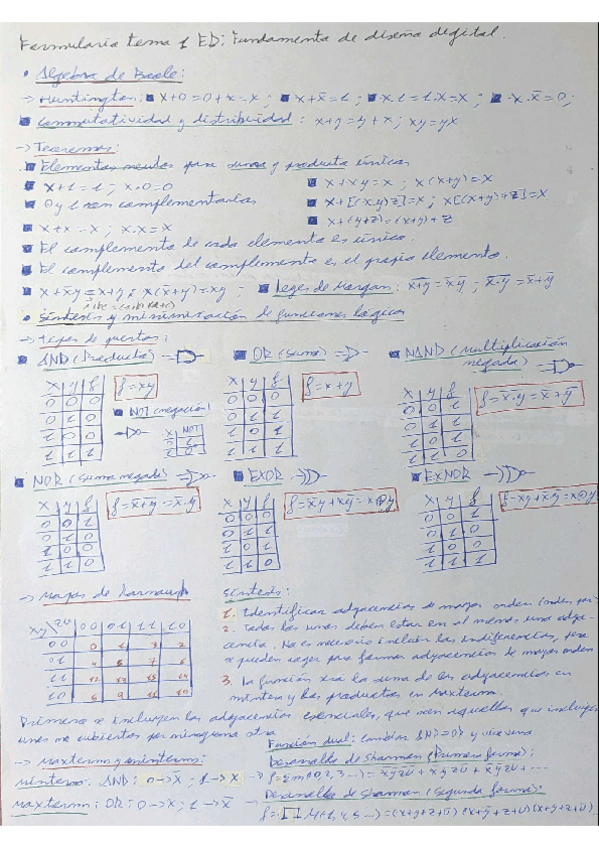 Formulario tema 1 ED: Fundamento de diseño digital.
• Algebra de Boole:
→ Huntington: x+0=0+x=x ; x+x̄=1 ; x·1=1·x=x ; x·x̄=0 ;
conmutatividad y distributividad : x+y=y+x ; xy=yx
→ Teoremas:
Elementos neutros para suma y producto únicos
x+1=1 ; x·0=0
x+xy=x ; x(x+y)=x
0 y 1 son complementarios
x+[(x·y)z]=x ; x[(x+y)+z]=x
x+x=x ; x·x=x
x+(y+z)=(x+y)+z
El complemento de cada elemento es único.
El complemento del complemento es el propio elemento.
x+x̄y=x+y ; x(x̄+y)=xy
Leyes de Morgan:
• Síntesis y minimización de funciones lógicas
→ Tipos de puertas:
AND (Producto)
OR (suma)
NAND (multiplicación negada)
x y f
0 0 0
0 1 0
1 0 0
1 1 1
f=xy
NOT (negación)
x NOT
0 1
1 0
x y f
0 0 0
0 1 1
1 0 1
1 1 1
f=x+y
x y f
0 0 1
0 1 1
1 0 1
1 1 0
NOR (suma negada)
EXOR
EXNOR
x y f
0 0 1
0 1 0
1 0 0
1 1 0
x y f
0 0 0
0 1 1
1 0 1
1 1 0
f=x̄y+xȳ=x⊕y
x y f
0 0 1
0 1 0
1 0 0
1 1 1
→ Mapas de Karnaugh
xy zv 00 01 11 10
00 0 1 3 2
01 4 5 7 6
11 12 13 15 14
10 8 9 11 10
Síntesis:
1. Identificar adyacencias de mayor orden
2. Todos los unos deben estar en al menos una adya-
cencia. No es necesario incluir las indiferencias, pero
se pueden coger para formar adyacencias de mayor orden
3. La función será la suma de las adyacencias en
minterm y los productos en Maxterm.
Primero se incluyen las adyacencias esenciales, que son aquellas que incluyen
unos no cubiertos por ninguna otra
Función dual: cambiar AND=OR y
→ Maxterms y minterms:
Desarrollo de Shannon (Primera forma):
minterm: AND: 0→x̄ ; 1→x
Desarrollo de Shannon (segunda forma):
Maxterm: OR: 0→x ; 1→x̄